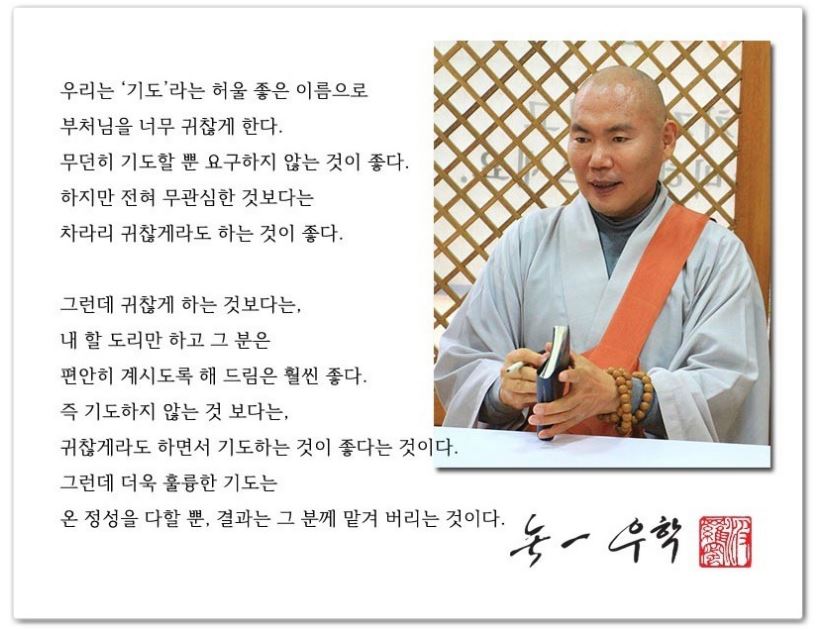 우리는 ‘기도’라는 허울 좋은 이름으로
부처님을 너무 귀찮게 한다.
무던히 기도할 뿐 요구하지 않는 것이 좋다.
하지만 전혀 무관심한 것보다는
차라리 귀찮게라도 하는 것이 좋다.
그런데 귀찮게 하는 것보다는,
내 할 도리만 하고 그 분은
편안히 계시도록 해 드림은 훨씬 좋다.
즉 기도하지 않는 것 보다는,
귀찮게라도 하면서 기도하는 것이 좋다는 것이다.
그런데 더욱 훌륭한 기도는
온 정성을 다할 뿐, 결과는 그 분께 맡겨 버리는 것이다.
우학